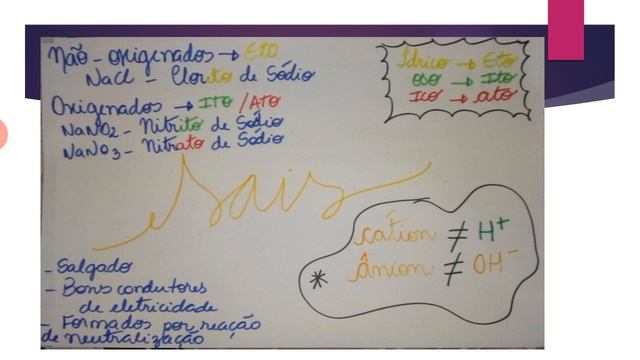 Não - oxigenados → ETO
NaCl - Cloreto de Sódio
Oxigenados → ITO / ATO
NaNO2 - Nitrito de Sódio
NaNO3 - Nitrato de Sódio
Ídrico → Eto
OSO → Ito
ICO → ato
Sais
cátion ≠ H⁺
* ânion ≠ OH⁻
- Salgado
- Bons condutores
de eletricidade
- Formados por reação
de neutralização